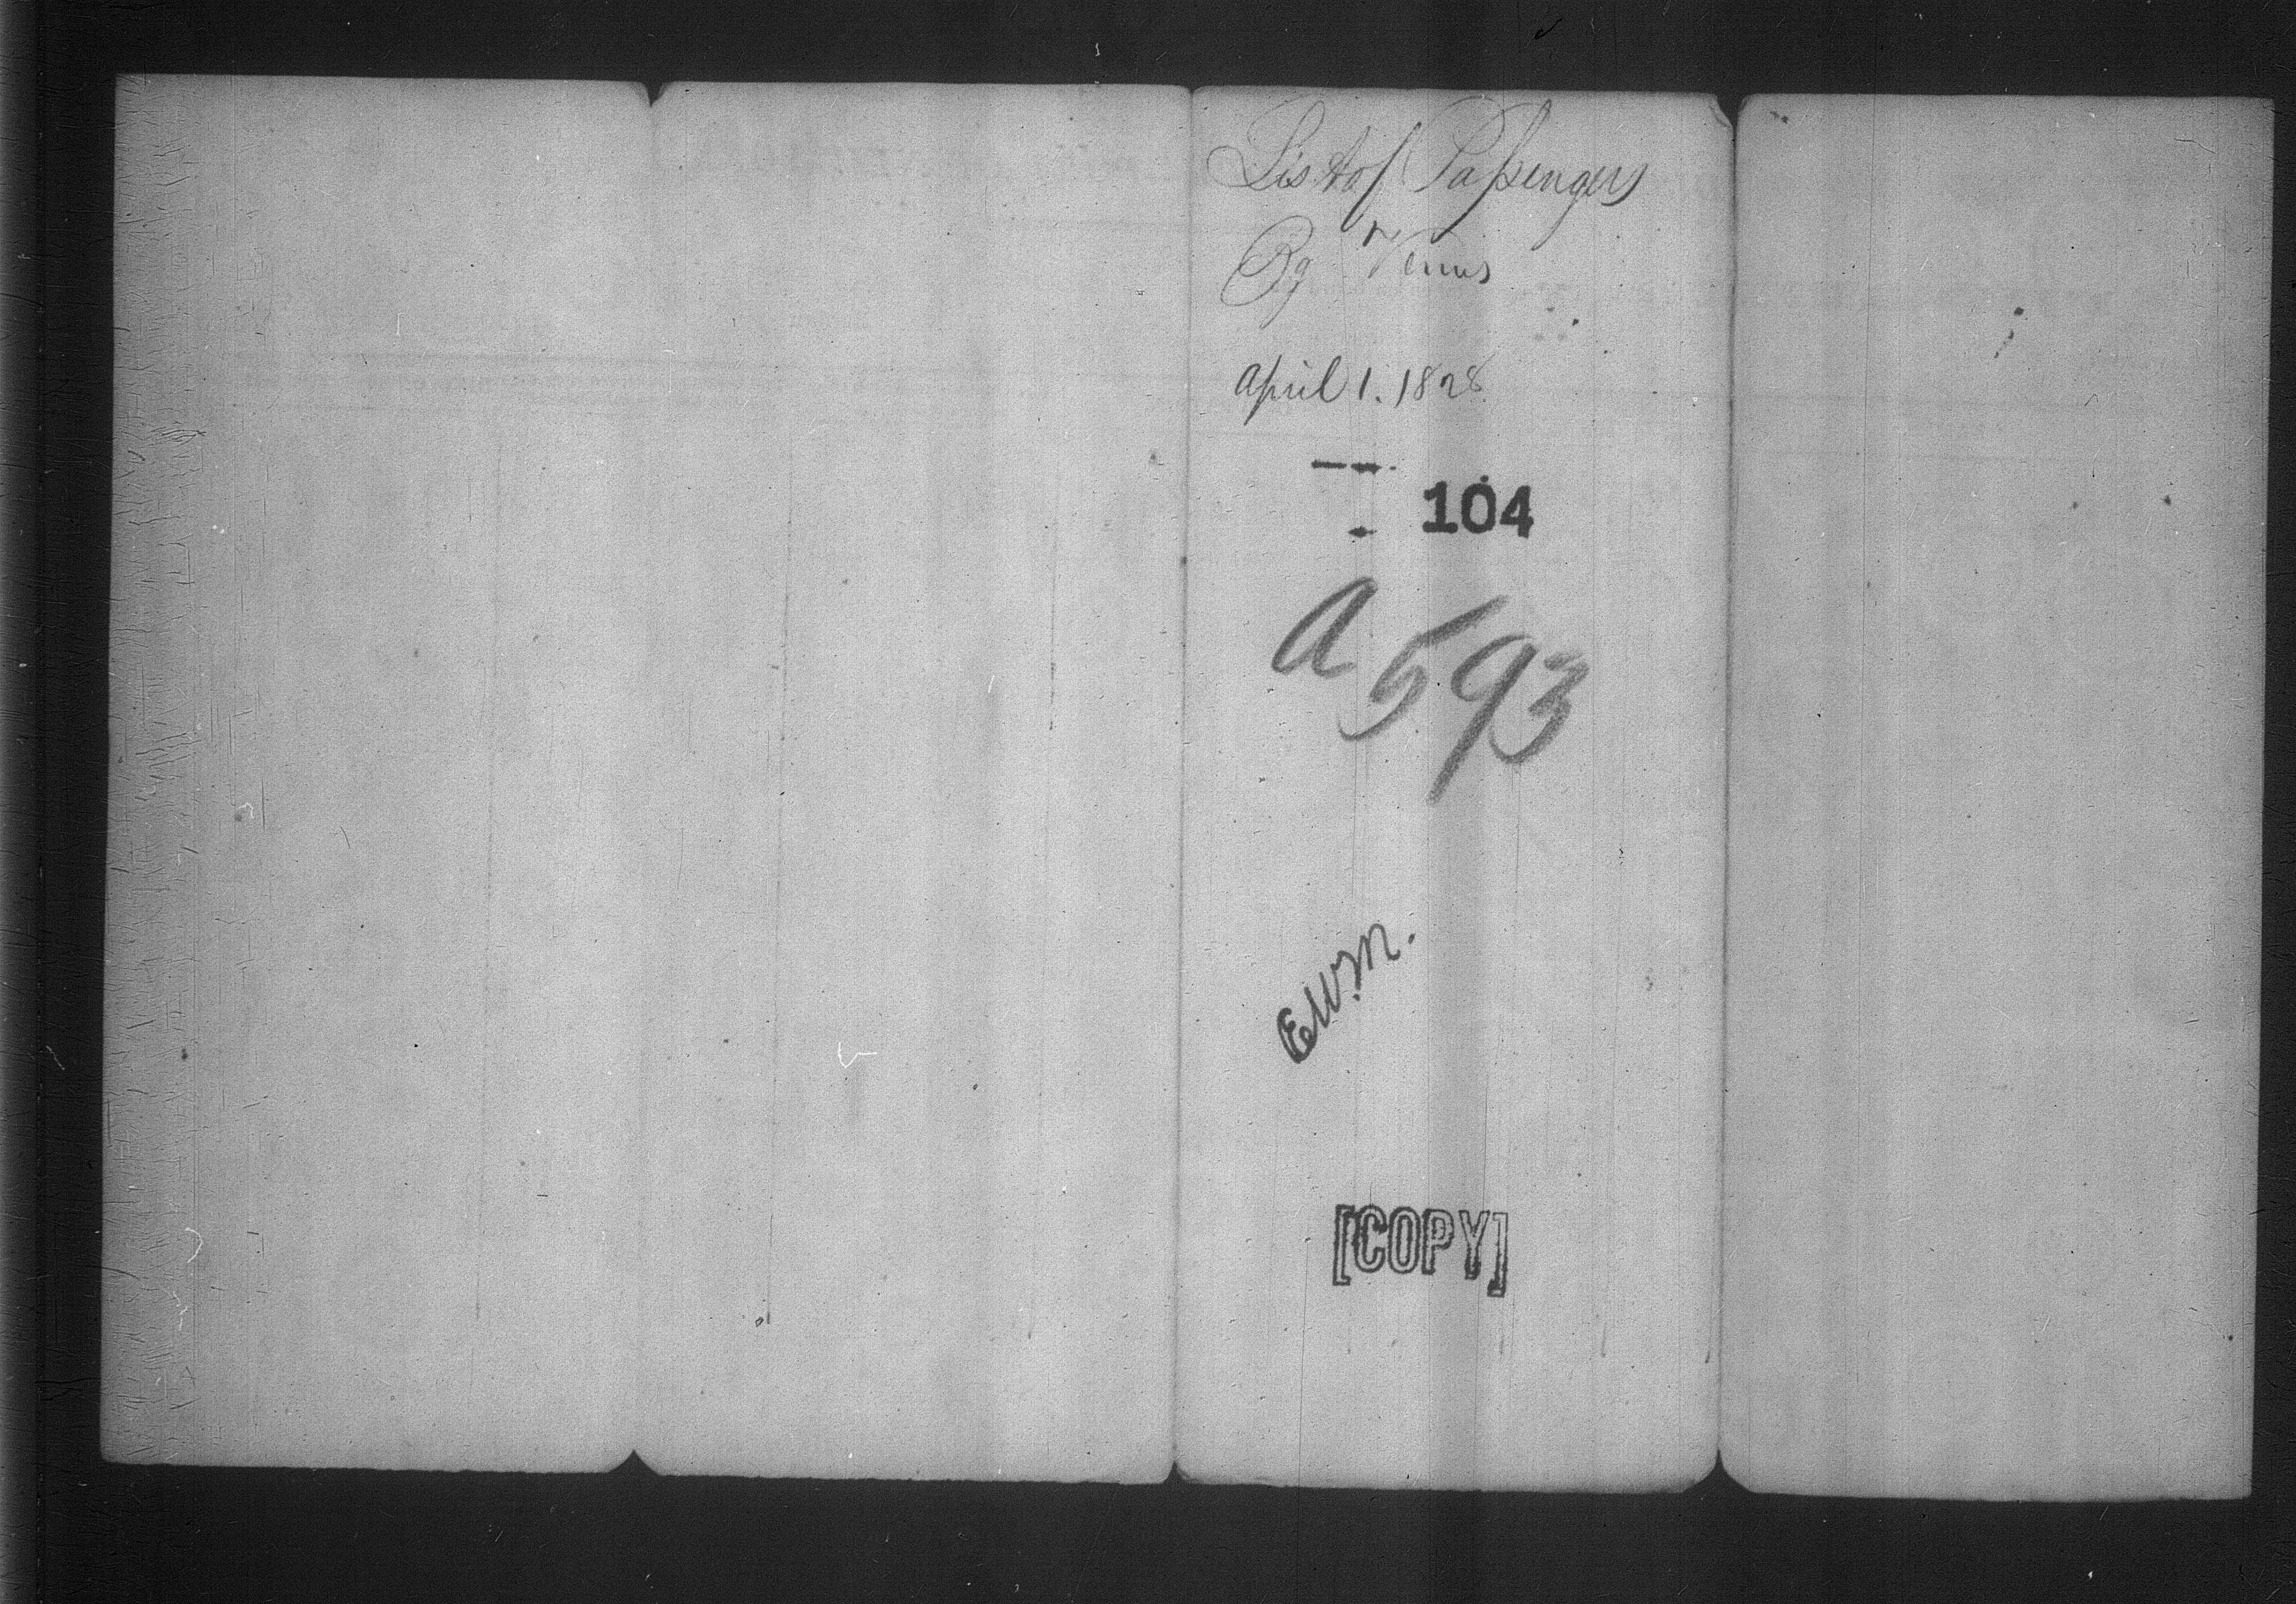 List of Passengers
Bg Venus
April 1. 1828
104
A 593
E.W.M.
[COPY]